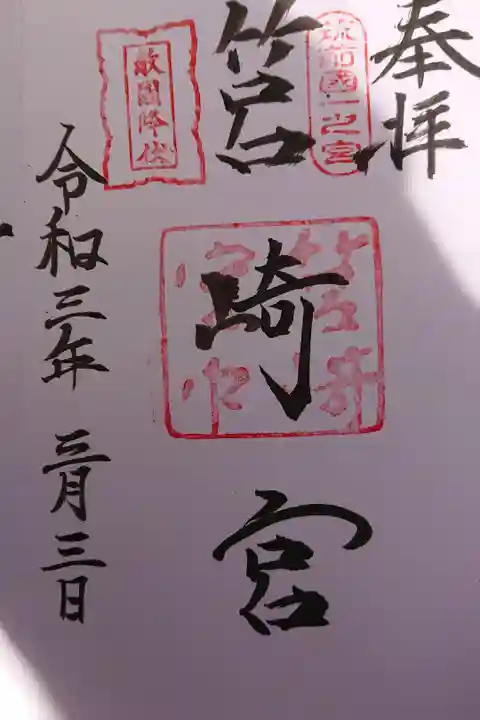 奉拝
筑前國一之宮
筥崎宮
敵國降伏
令和三年 三月三日